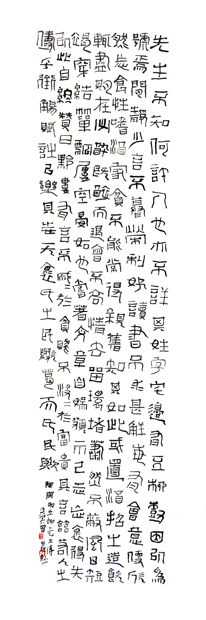 先生不知何許人也亦不詳其姓字宅邊有五柳樹因以為
號焉閑靜少言不慕榮利好讀書不求甚解每有會意便欣
然忘食性嗜酒家貧不能常得親舊知其如此或置酒招之造飲
輒盡期在必醉既醉而退曾不吝情去留環堵蕭然不蔽風日短
褐穿結簞瓢屢空晏如也常著文章自娛頗示己志忘懷得失
以此自終贊曰黔婁有言不戚戚於貧賤不汲汲於富貴其言茲若人之
儔乎銜觴賦詩以樂其志無懷氏之民歟葛天氏之民歟